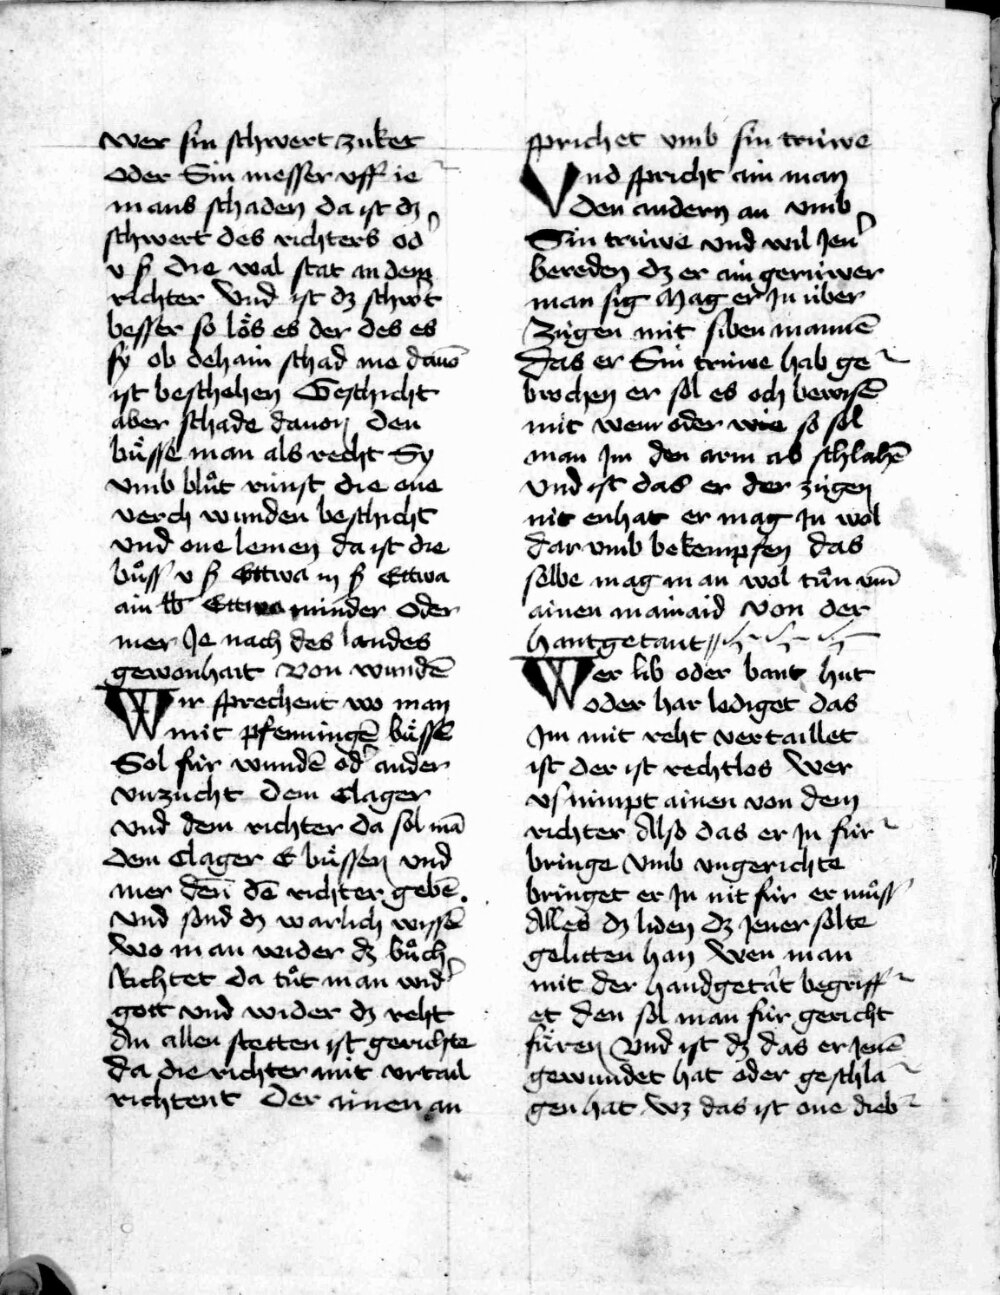 wer sin schwert zuket
oder Sin messer vff ie¬
mans schaden da ist dz
schwert des richters od᾽
v ß die wal stat an dem
richter Vnd ist dz schw᾽t
besser so lo᷑s es der des es
sy ob dehain schad me dauō
ist beschehen Geschicht
aber schade dauon den
bu᷑sse man als recht Sy
vmb blůt runst die one
verch wunden beschicht
vnd one lemen da ist die
bůss v ß Ettwa iij ß Ettwa
ain lb Ettwa minder oder
mer Je nach des landes
gewonhait Von wundē
Wir sprechent wo man
mit pfenningē bu᷑ssē
Sol für wundē od᾽ ander
vnzucht dem Clager
vnd dem richter da sol mā
dem Clager E bu᷑ssen vnd
mer den̄ dē richter gebē.
vnd sond dz warlich wissē
wo man wider dz bůch
Richtet da tůt man wid᾽
gott vnd wider dz reht
An allen stetten ist gerichte
da die richter mit vrtail
richtent Der ainen an
sprichet vmb sin trüwe
Vnd spricht ain man
den andern an vmb
Sin trüwe vnd wil Jen᾽
bereden dz er ain gerüwer
man sig Mag er Jn über
zügen mit siben mannē
das er Sin trüwe hab ge¬
brochen er sol es och bewisē
mit wem oder wie so sol
man Jm den arm ab schlahē
vnd ist das er der zügen
nit enhat er mag Jn wol
dar vmb bekempfen das
selbe mag man wol tůn vm̄
ainen mainaid von der
hantgetant
Wer lib oder bant hut
oder har lediget das
Jm mit reht vertaillet
ist der ist rechtlos Wer
vsnimpt ainen von dem
richter Also das er Jn für¬
bringe vmb vngerichte
bringet er Jn nit für er můss
Alles dz liden dz Jener solte
gelitten han Wen man
mit der handgetat begriff¬
et den sol man für gericht
fu᷑ren Vnd ist dz das er Jenē
gewundet hat oder geschla¬
gen hat Wz das ist one dieb¬